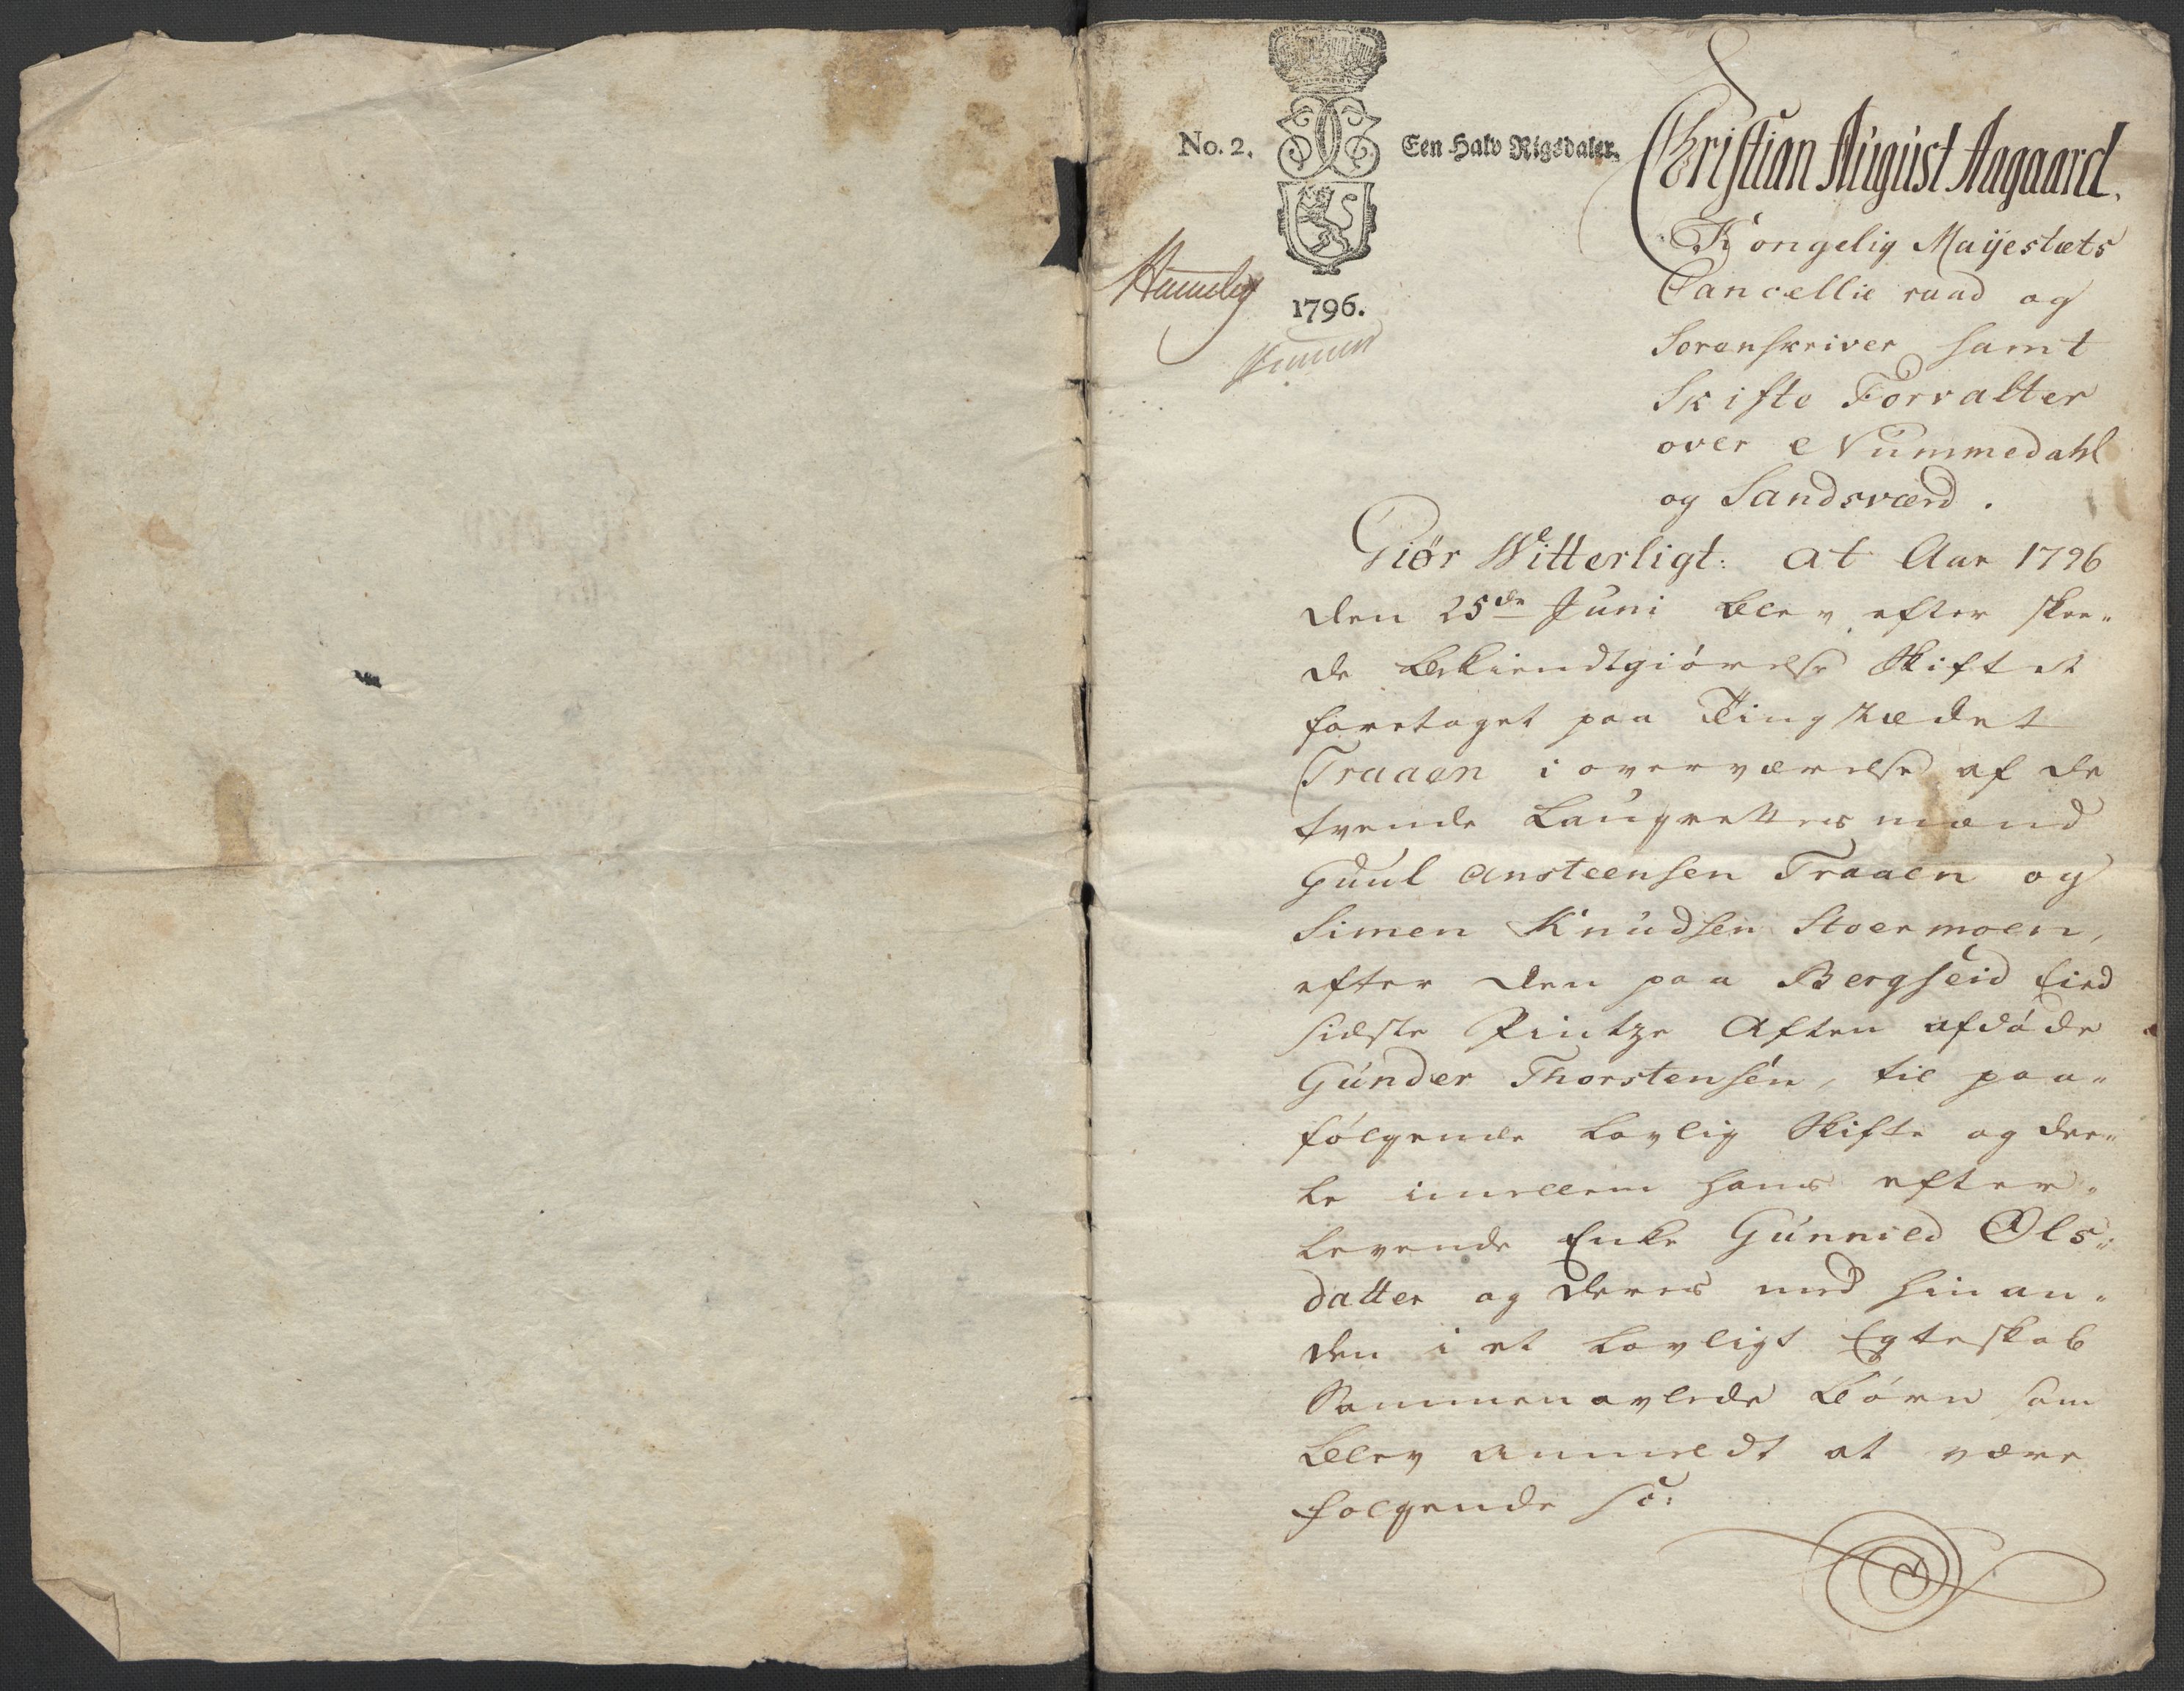 No. 2.
Een Halv Rigsdaler.
1796.
Christian August Aagaard.
Kongelig Mayestæts
Cancellie raad og
Sorenskriver samt
Skifte Forvalter
over Nummedahl
og Sandsværd.
Giør Witterligt: at Aar 1796
den 25de Juni blev efter skee„
de bekiendtgiørelse Skiftet
foretaget paa Tingstædet
Traaen i overværelse af de
tvende Laugrettes mænd
Guul Ansteensen Traaen og
Simen Knudsen Stoermoen,
efter den paa Bergseid Eied
sidste Pintze Aften afdøde
Gunder Thorstensen, til paa„
følgende Lovlig Skifte og dee„
le imellem hans efter„
levende Enke Gunnild Ols„
datter og deres med hinan„
den i et Lovligt Egteskab
Sammenavlede børn som
blev anmeldt at være
følgende s: